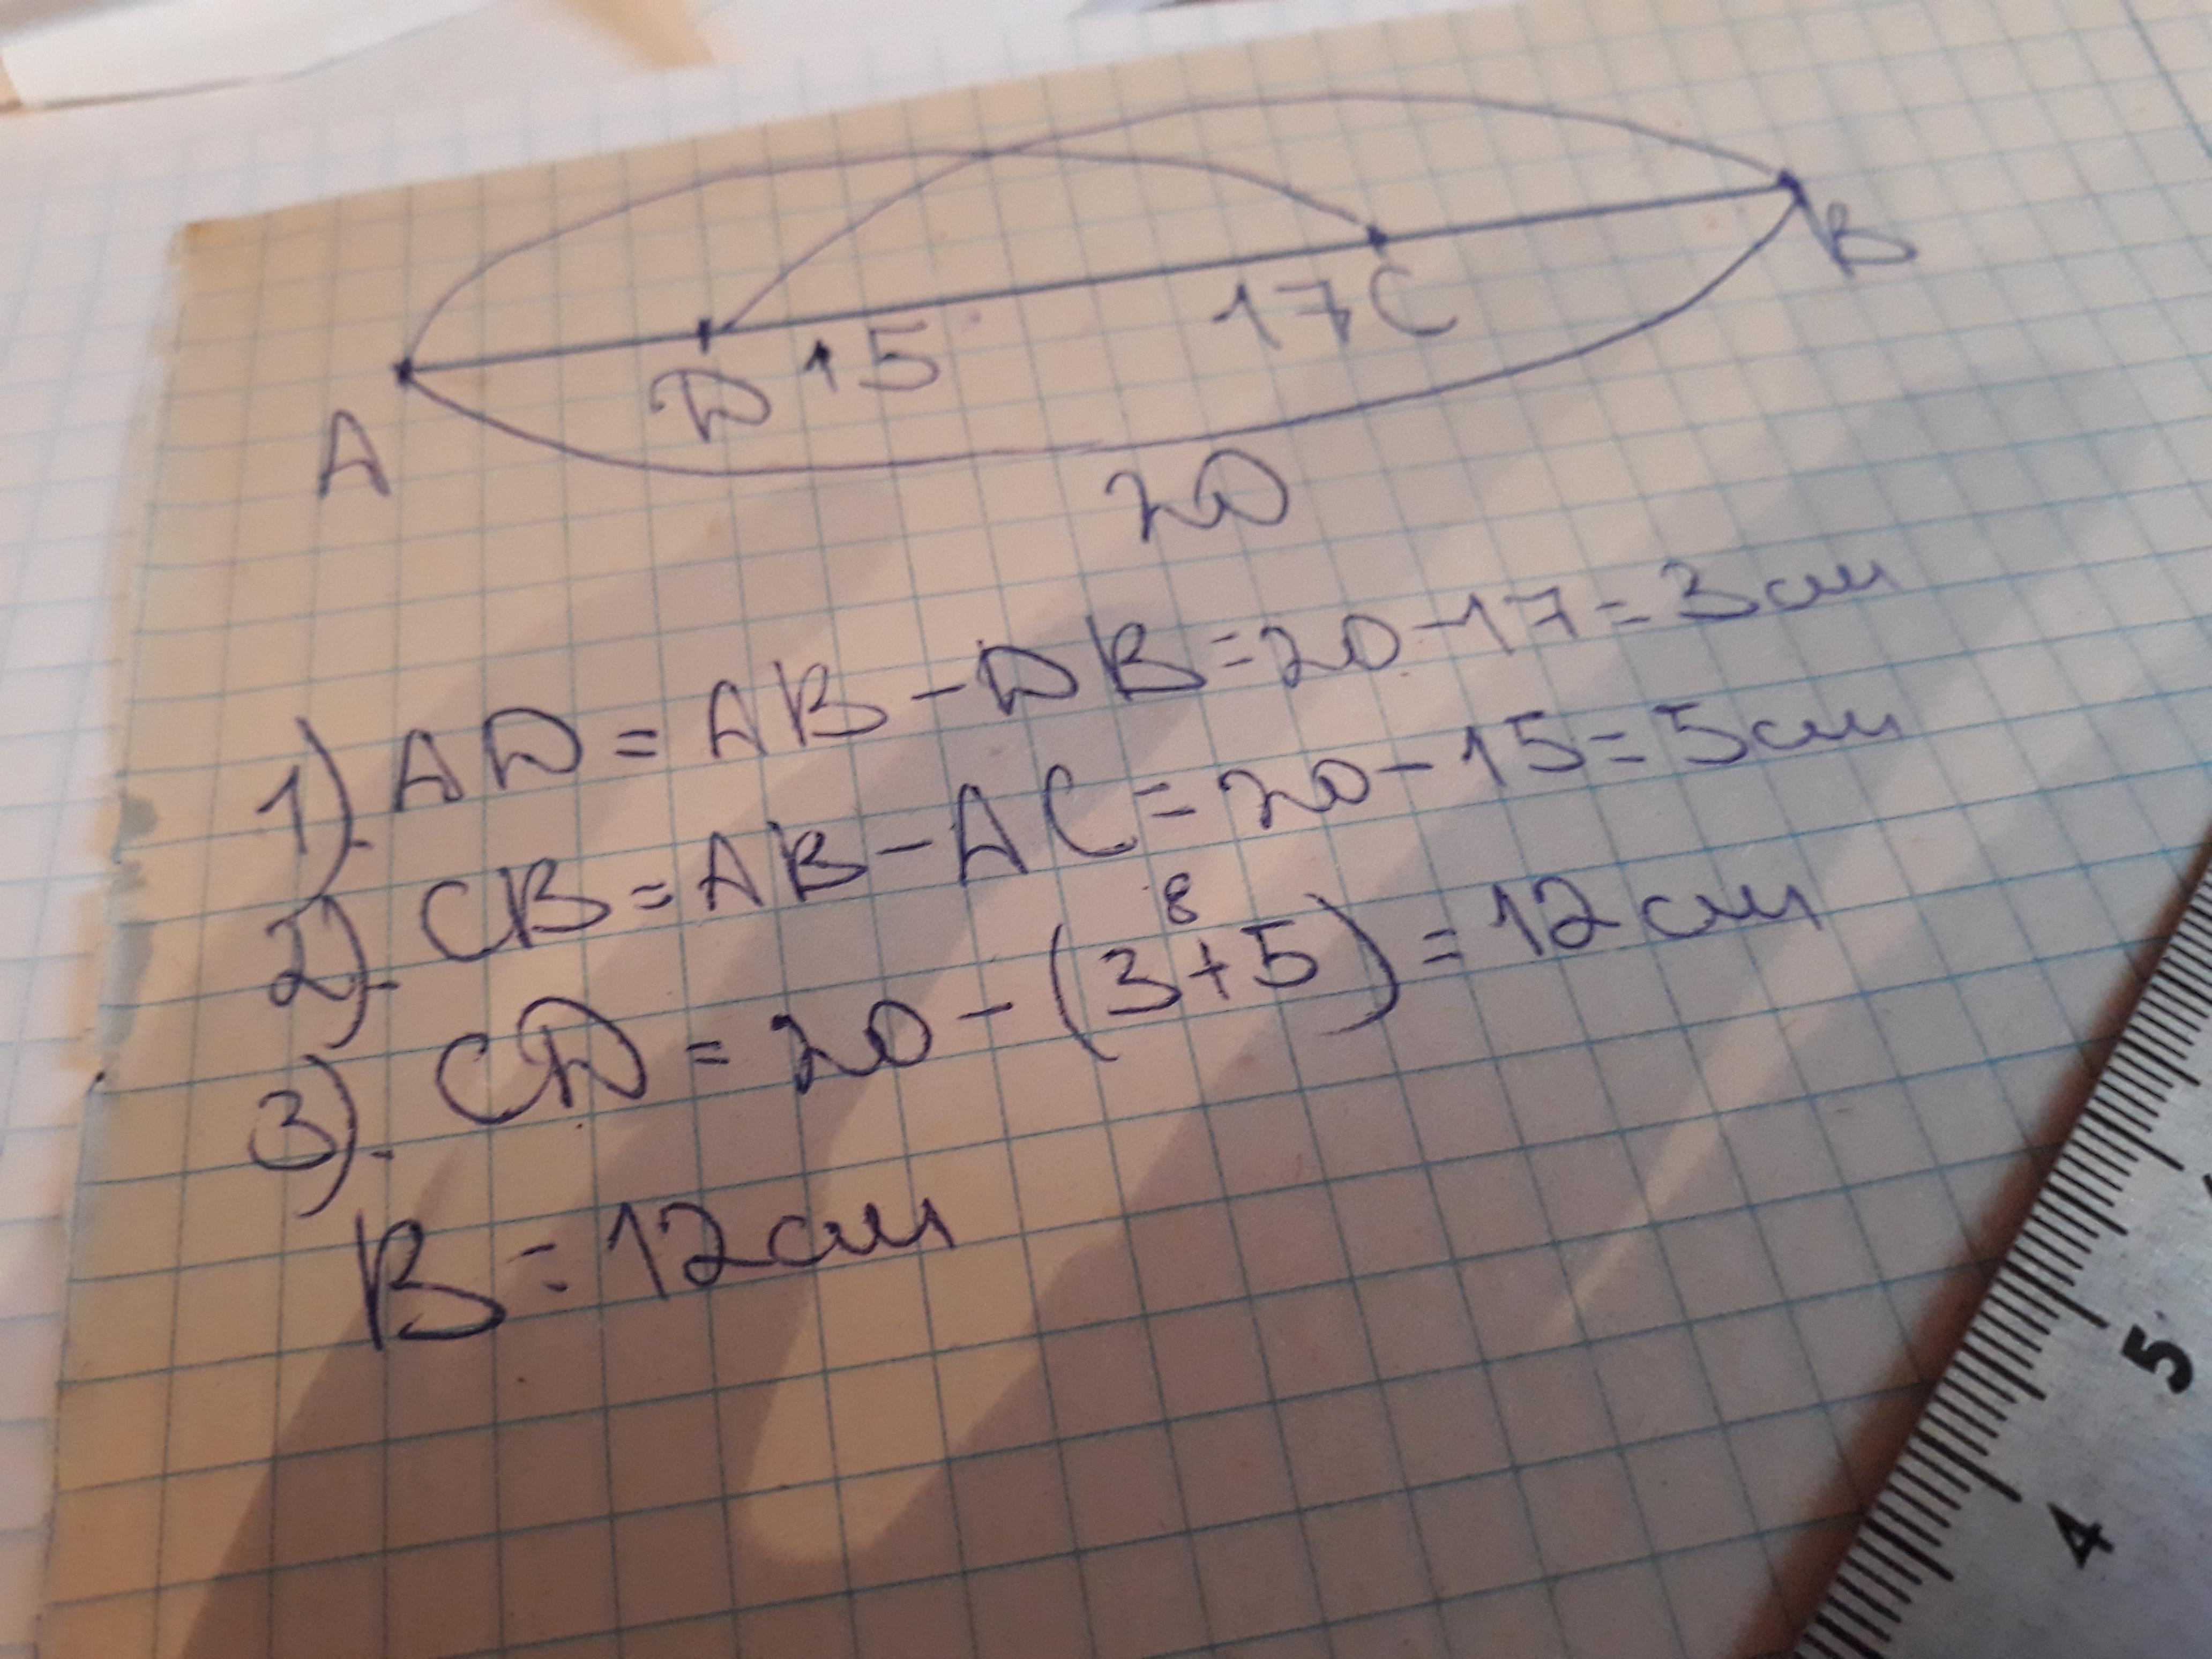 A D 15 17 C B
20
1). AD = AB - DB = 20 - 17 = 3 см
2). CB = AB - AC = 20 - 15 = 5 см
8
3). CD = 20 - (3 + 5) = 12 см
В = 12 см
5
4